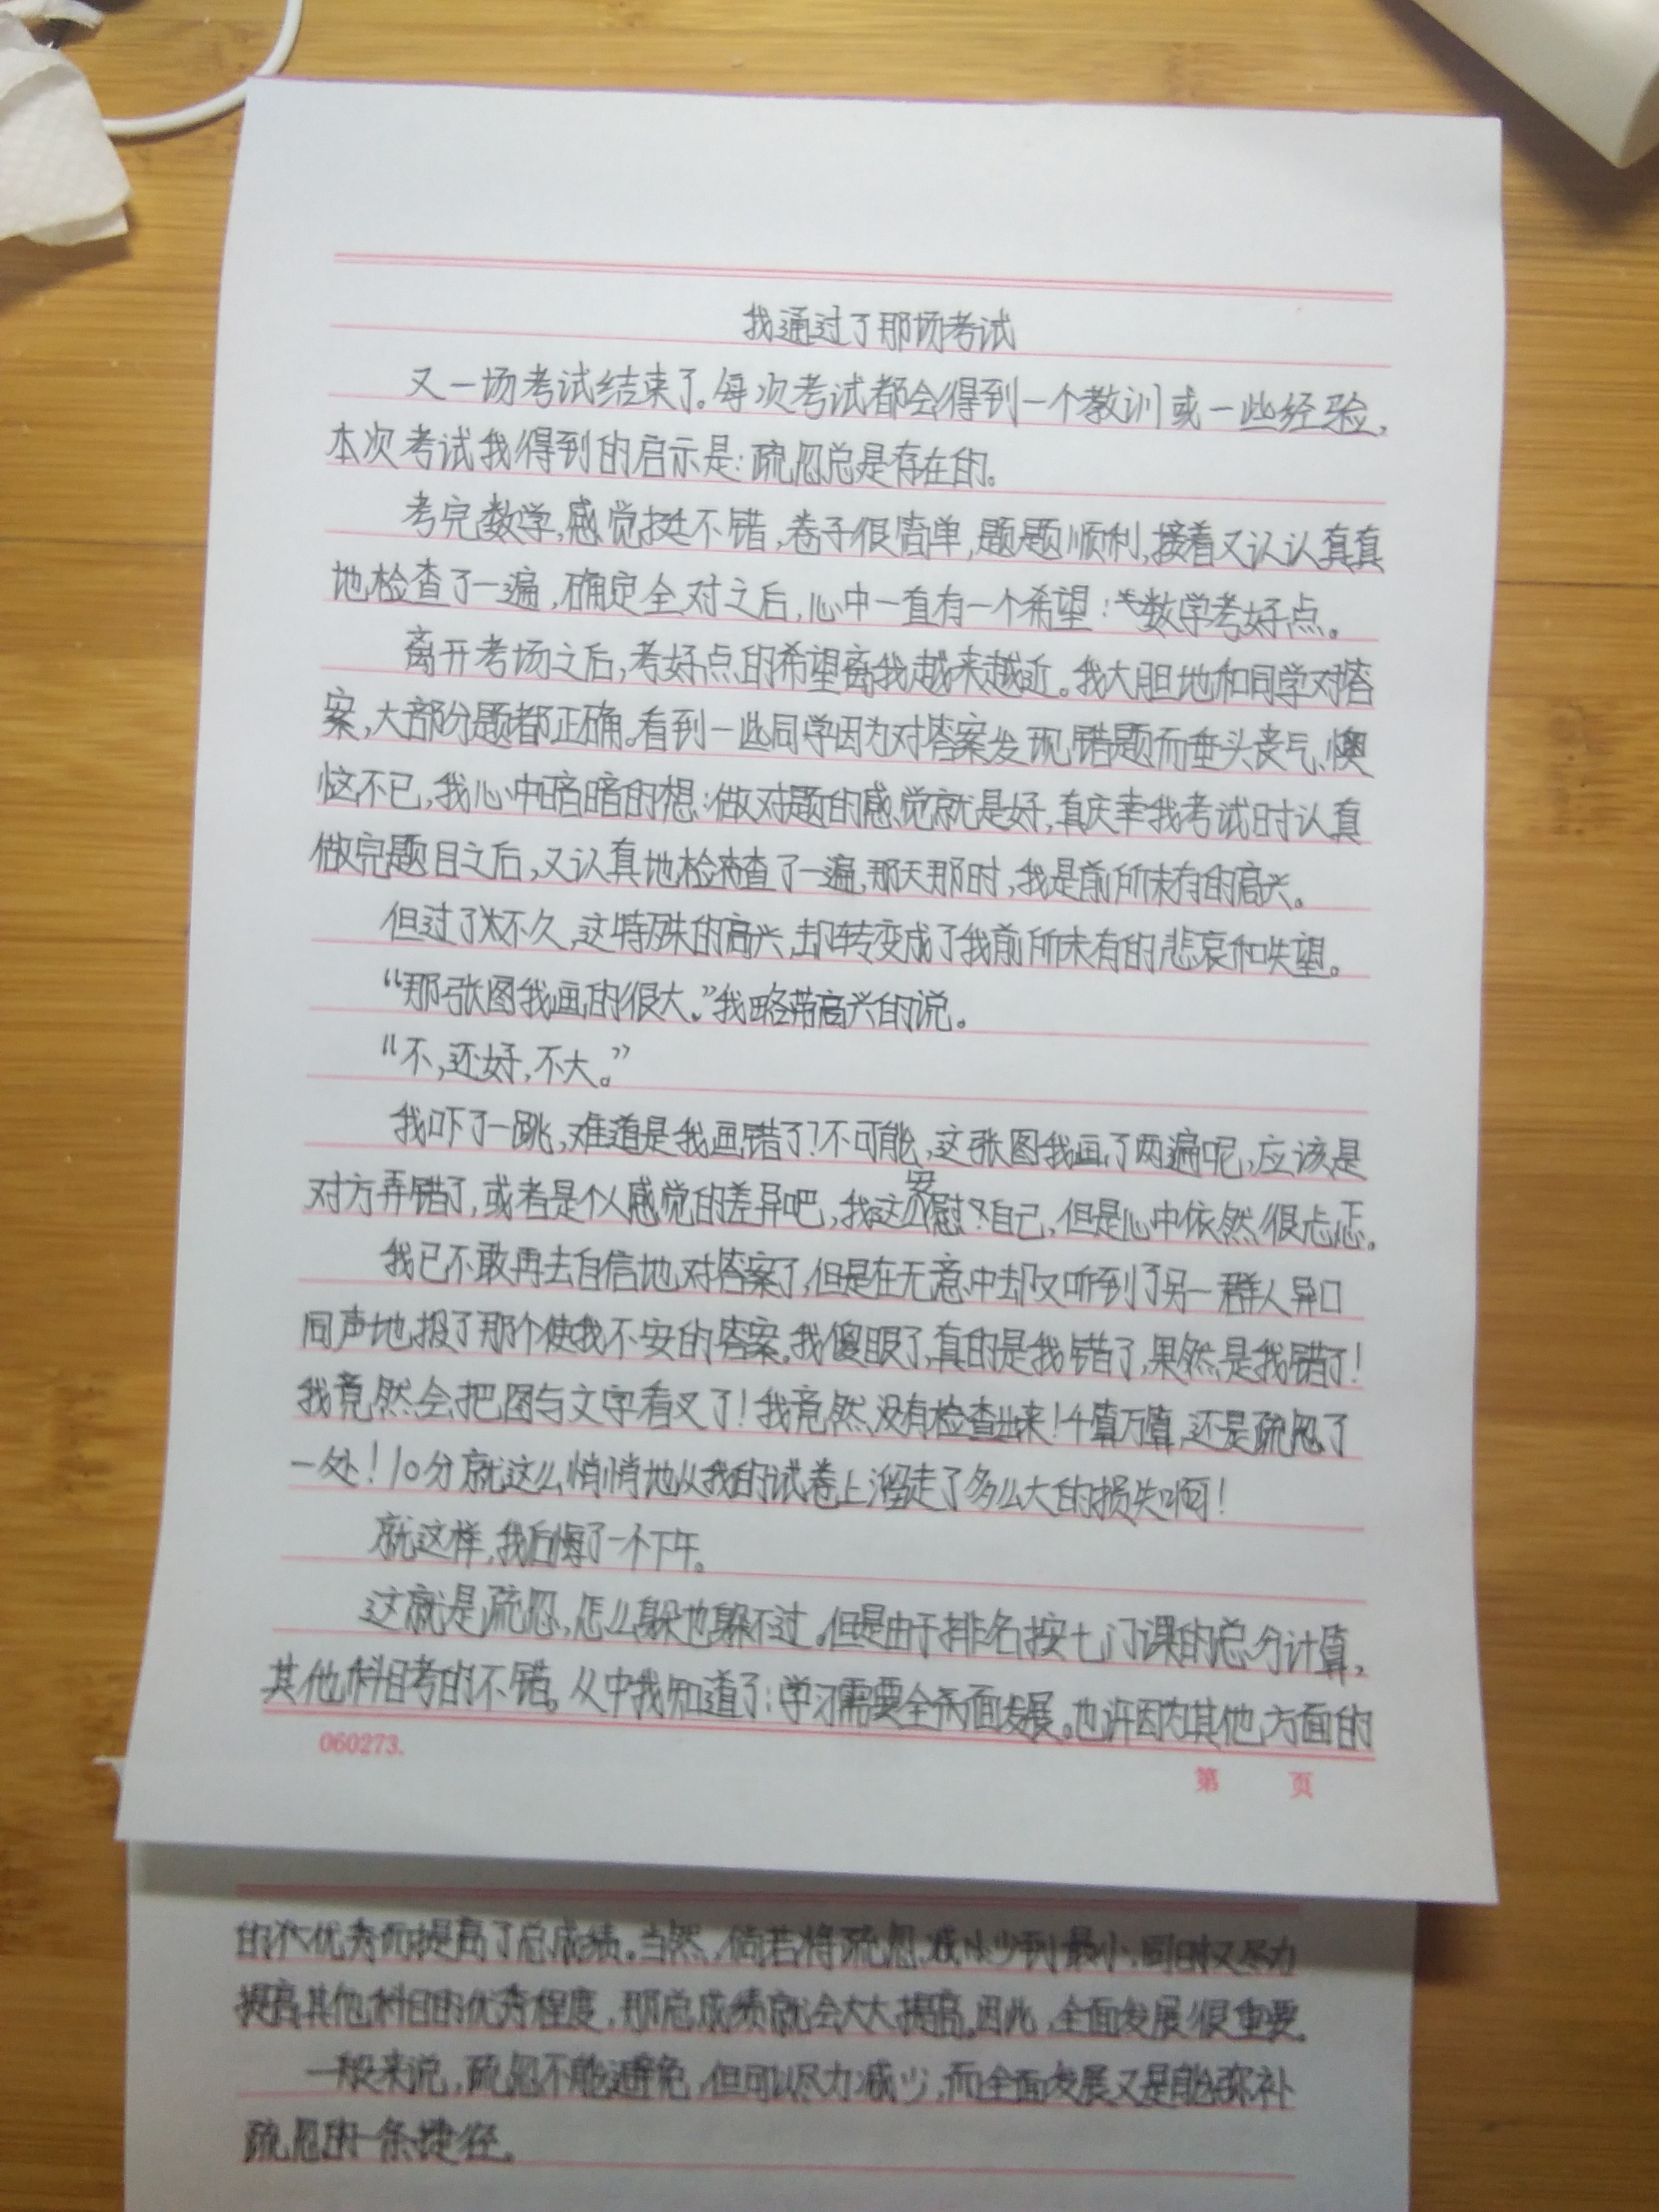 我通过了那场考试
又一场考试结束了。每次考试都会得到一个教训或一些经验,
本次考试我得到的启示是:疏忽总是存在的。
考完数学,感觉挺不错,卷子很简单,题题顺利,接着又认认真真
地检查了一遍,确定全对之后,心中一直有一个希望:数学考好点。
离开考场之后,考好点的希望离我越来越近。我大胆地和同学对答
案,大部分题都正确。看到一些同学因为对答案发现错题而垂头丧气、懊
恼不已,我心中暗暗的想:做对题的感觉就是好,真庆幸我考试时认真
做完题目之后,又认真地检查了一遍,那天那时,我是前所未有的高兴。
但过了不久,这特殊的高兴,却转变成了我前所未有的悲哀和失望。
“那张图我画的很大。”我略带高兴的说。
“不,还好,不大。”
我吓了一跳,难道是我画错了?不可能,这张图我画了两遍呢,应该是
对方弄错了,或者是个人感觉的差异吧,我这么安慰自己,但是心中依然很忐忑。
我已不敢再去自信地对答案了,但是在无意中却又听到了另一群人异口
同声地报了那个使我不安的答案。我傻眼了,真的是我错了,果然是我错了!
我竟然会把图与文字看叉了!我竟然没有检查出来!千算万算,还是疏忽了
一处!10分就这么悄悄地从我的试卷上溜走了多么大的损失啊!
就这样,我后悔了一个下午。
这就是疏忽,怎么躲也躲不过。但是由于排名按七门课的总分计算,
其他科目考的不错。从中我知道了:学习需要全面发展。也许因为其他方面的
060273.
第 页
的优秀而提高了总成绩。当然,倘若将疏忽减少到最小,同时又尽力
提高其他科目的优秀程度,那总成绩就会大大提高。因此,全面发展很重要。
一般来说,疏忽不能避免,但可以尽力减少,而全面发展又是能弥补
疏忽的一条捷径。